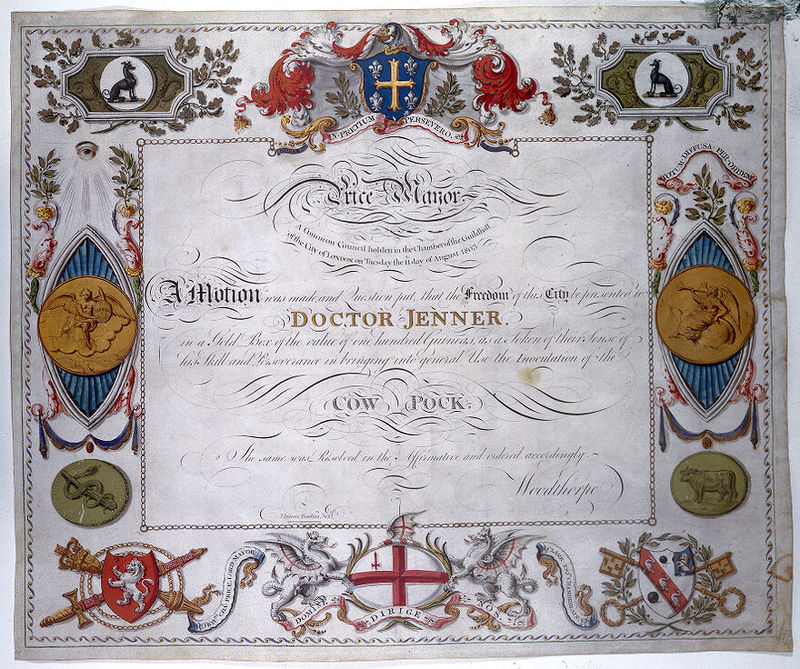 IN PRETIUM PERSEVERO.
Price Mayor.
A Common Council holden in the Chamber of the Guildhall
of the City of London on Tuesday the 11 day of August 1803
A Motion was made, and Question put, that the Freedom of this City be presented to
DOCTOR JENNER.
in a Gold Box of the value of one hundred Guineas, as a Token of their Sense of
his Skill and Perseverance in bringing into general Use the Inoculation of the
COW POCK.
The same was Resolved in the Affirmative and ordered accordingly.
Woodthorpe
Thomas Tomkins, Scr.
PRICE LORD MAYOR
DOMINE DIRIGE NOS